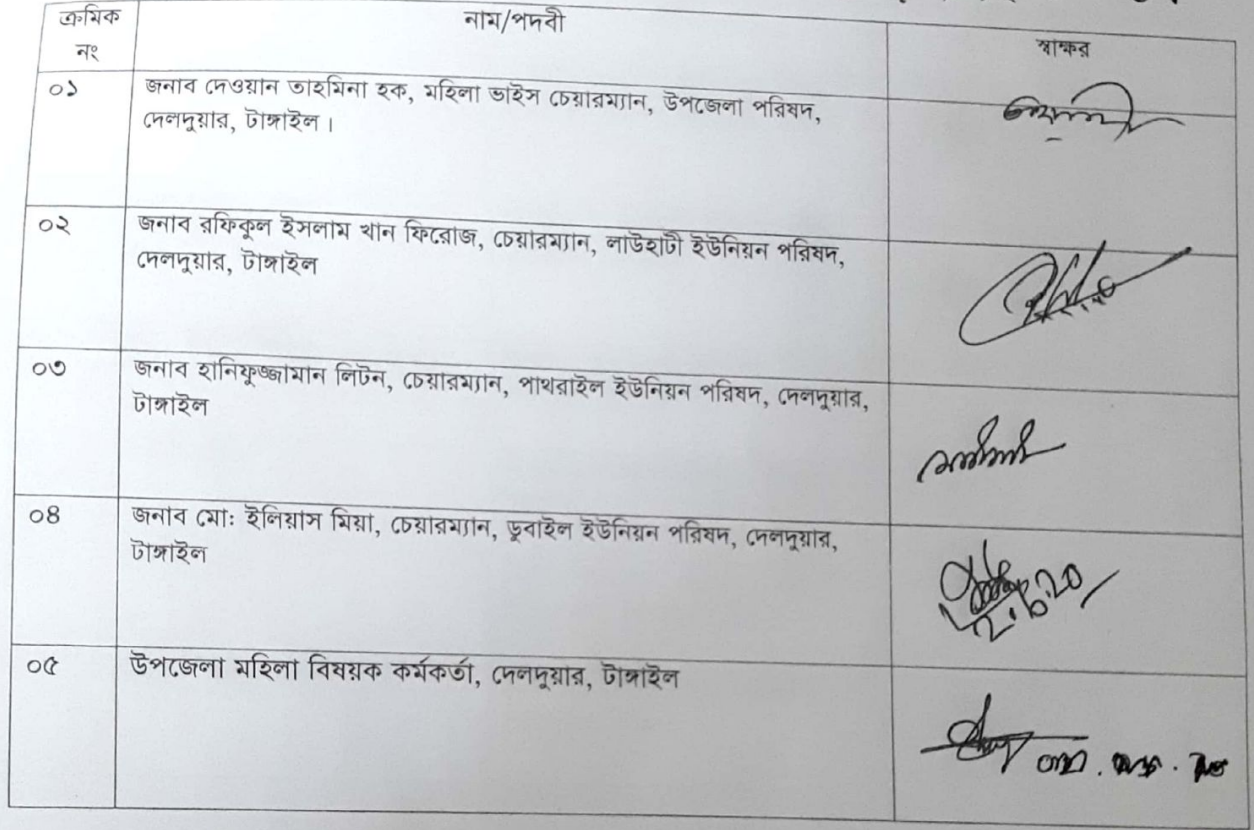 ক্রমিক নাম/পদবী স্বাক্ষর
নং
০১ জনাব দেওয়ান তাহমিনা হক, মহিলা ভাইস চেয়ারম্যান, উপজেলা পরিষদ,
দেলদুয়ার, টাঙ্গাইল।
০২ জনাব রফিকুল ইসলাম খান ফিরোজ, চেয়ারম্যান, লাউহাটী ইউনিয়ন পরিষদ,
দেলদুয়ার, টাঙ্গাইল
০৩ জনাব হানিফুজ্জামান লিটন, চেয়ারম্যান, পাথরাইল ইউনিয়ন পরিষদ, দেলদুয়ার,
টাঙ্গাইল
০৪ জনাব মো: ইলিয়াস মিয়া, চেয়ারম্যান, ডুবাইল ইউনিয়ন পরিষদ, দেলদুয়ার,
টাঙ্গাইল
০৫ উপজেলা মহিলা বিষয়ক কর্মকর্তা, দেলদুয়ার, টাঙ্গাইল